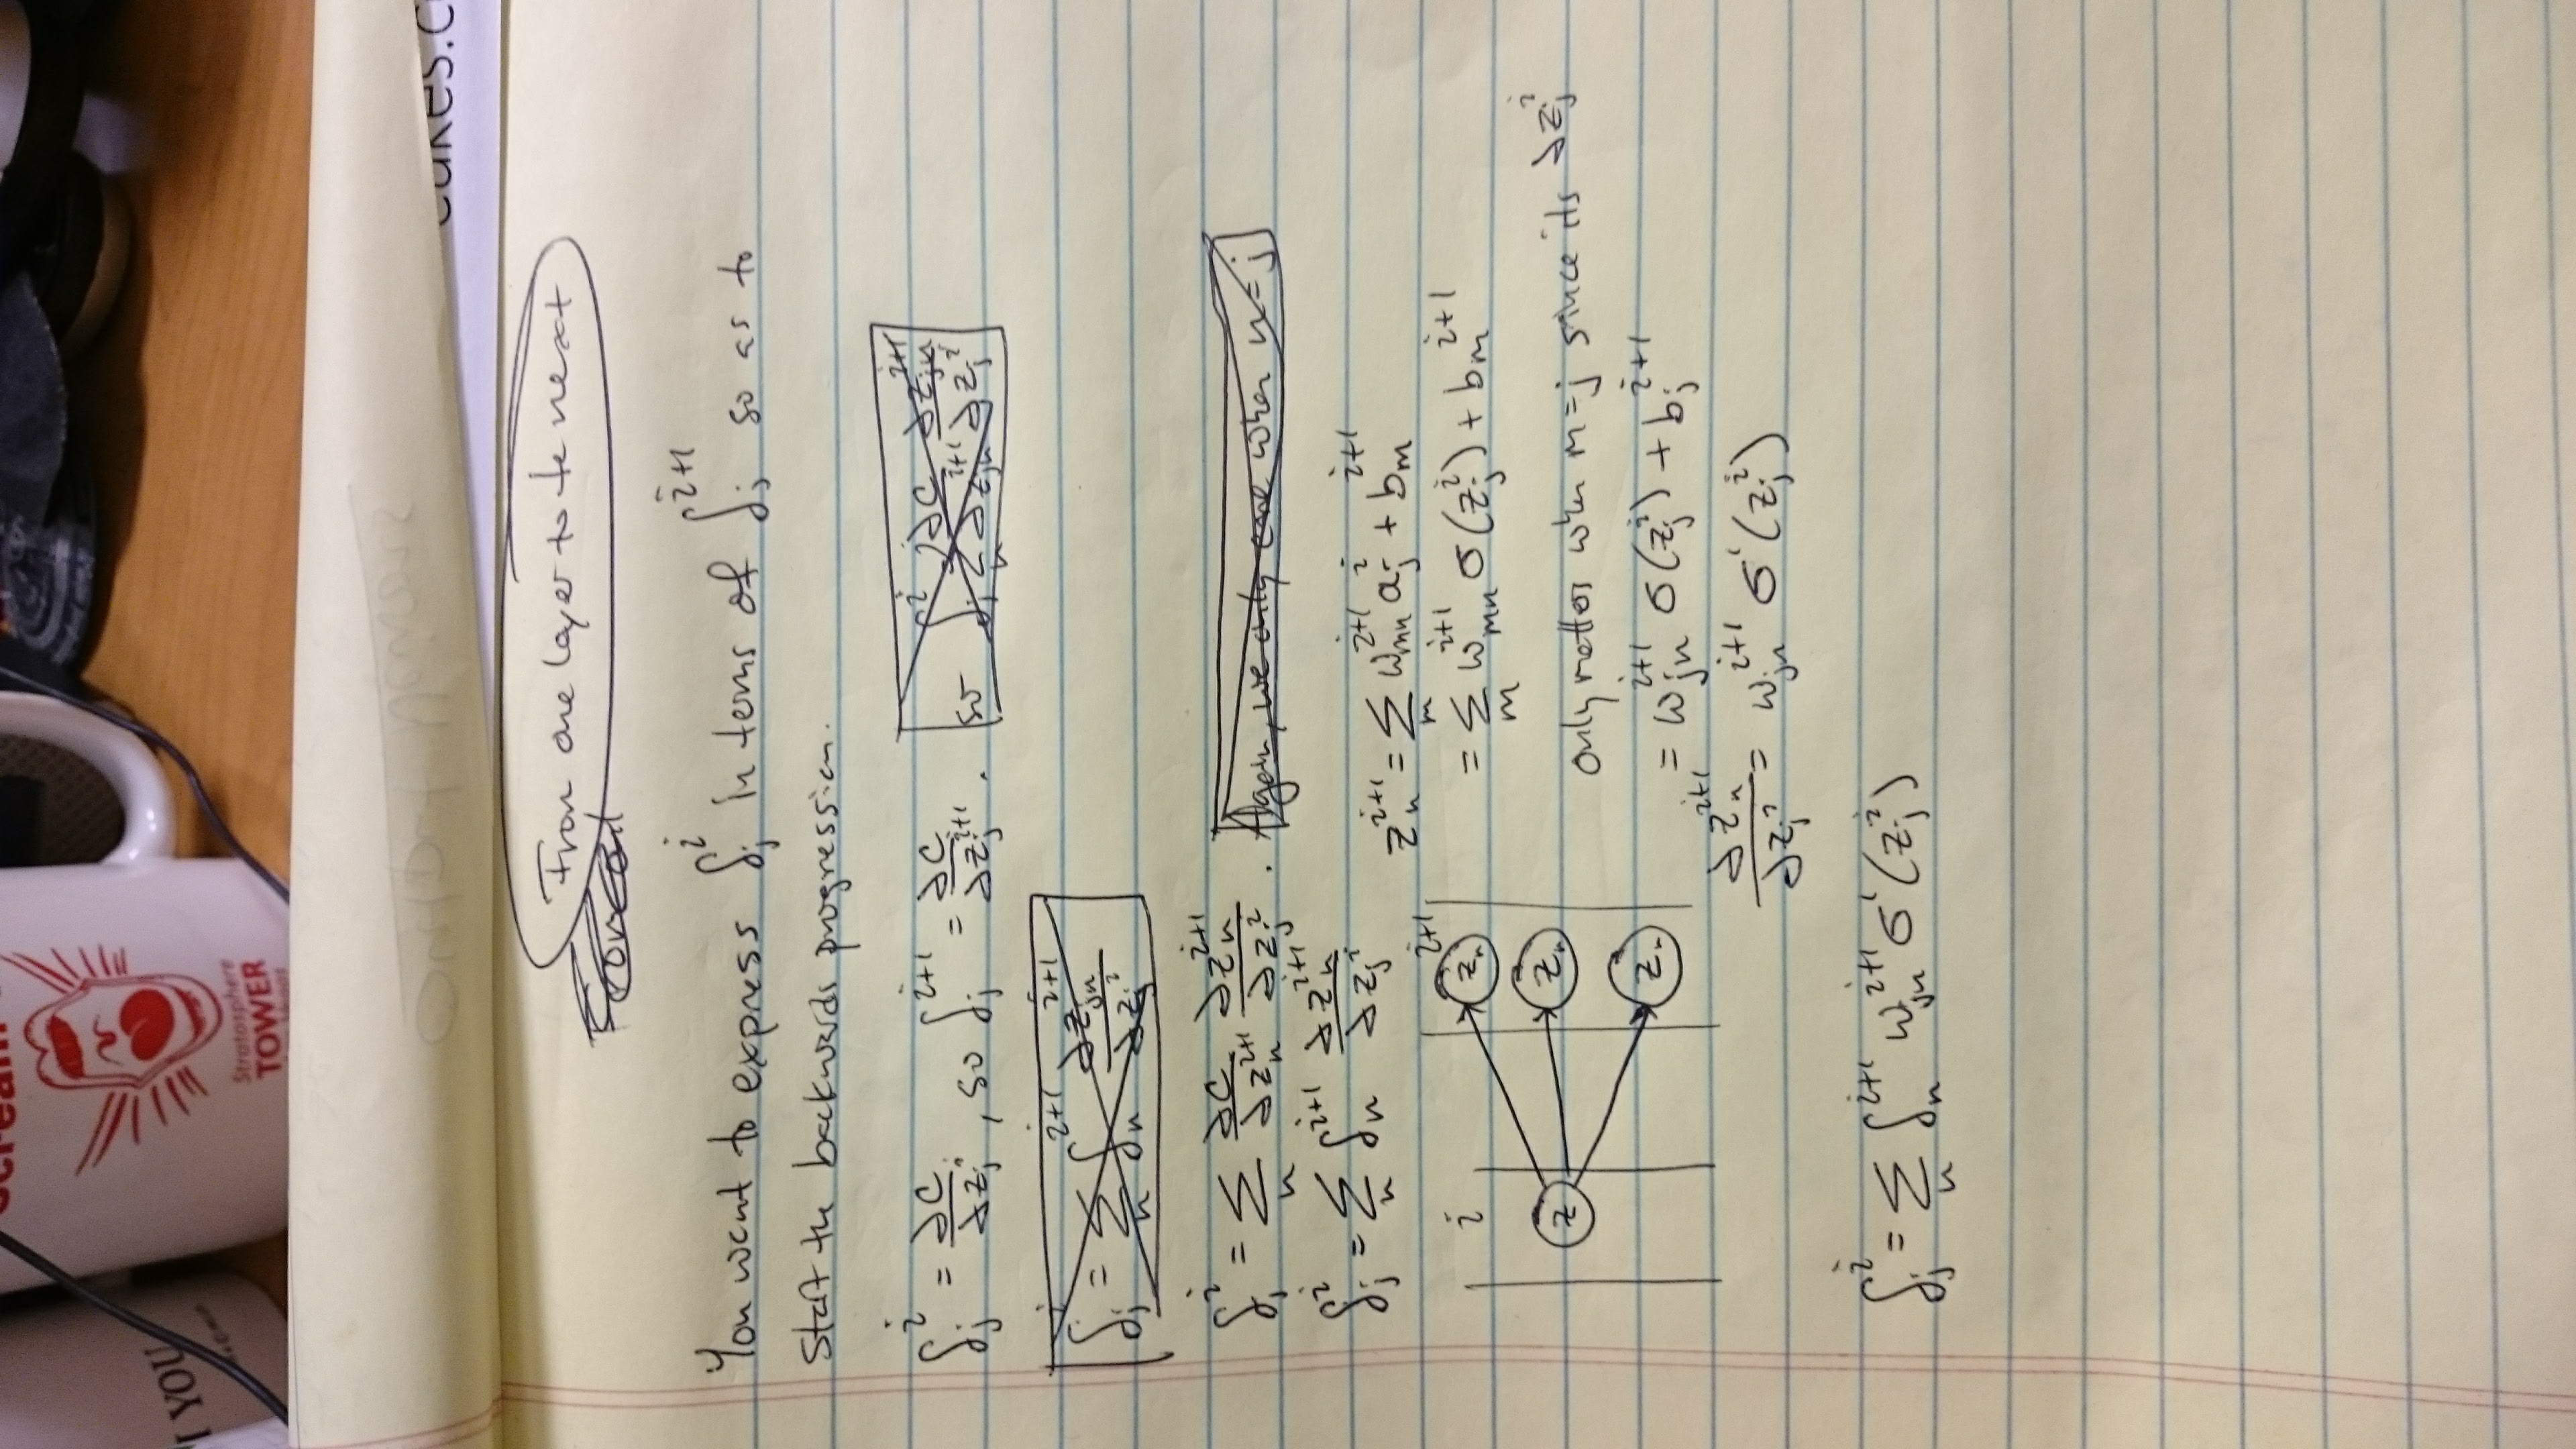 Scream
I YOU
Stratosphere
TOWER
cakes.c
From one layer to the next
From out
You want to express δ_j^i in terms of δ_j^{i+1} so as to
start the backwards progression.
δ_j^i = ∂C/∂z_j^i , so δ_j^{i+1} = ∂C/∂z_j^{i+1} . so δ_j^i = Σ_n ∂C/∂z_{jn}^{i+1} ∂z_{jn}^{i+1}/∂z_j^i
δ_j^i = Σ_n δ_n^{i+1} ∂z_{jn}^{i+1}/∂z_j^i
δ_j^i = Σ_n ∂C/∂z_n^{i+1} ∂z_n^{i+1}/∂z_j^i . Again, we only care when n=j
δ_j^i = Σ_n δ_n^{i+1} ∂z_n^{i+1}/∂z_j^i
z_n^{i+1} = Σ_m w_{mn}^{i+1} a_j^i + b_m^{i+1}
= Σ_m w_{mn}^{i+1} σ(z_j^i) + b_m^{i+1}
only matters when m=j since its ∂z_j^i
= w_{jn}^{i+1} σ(z_j^i) + b_j^{i+1}
∂z_n^{i+1}/∂z_j^i = w_{jn}^{i+1} σ'(z_j^i)
i
i+1
z
z_n
z_n
z_n
δ_j^i = Σ_n δ_n^{i+1} w_{jn}^{i+1} σ'(z_j^i)